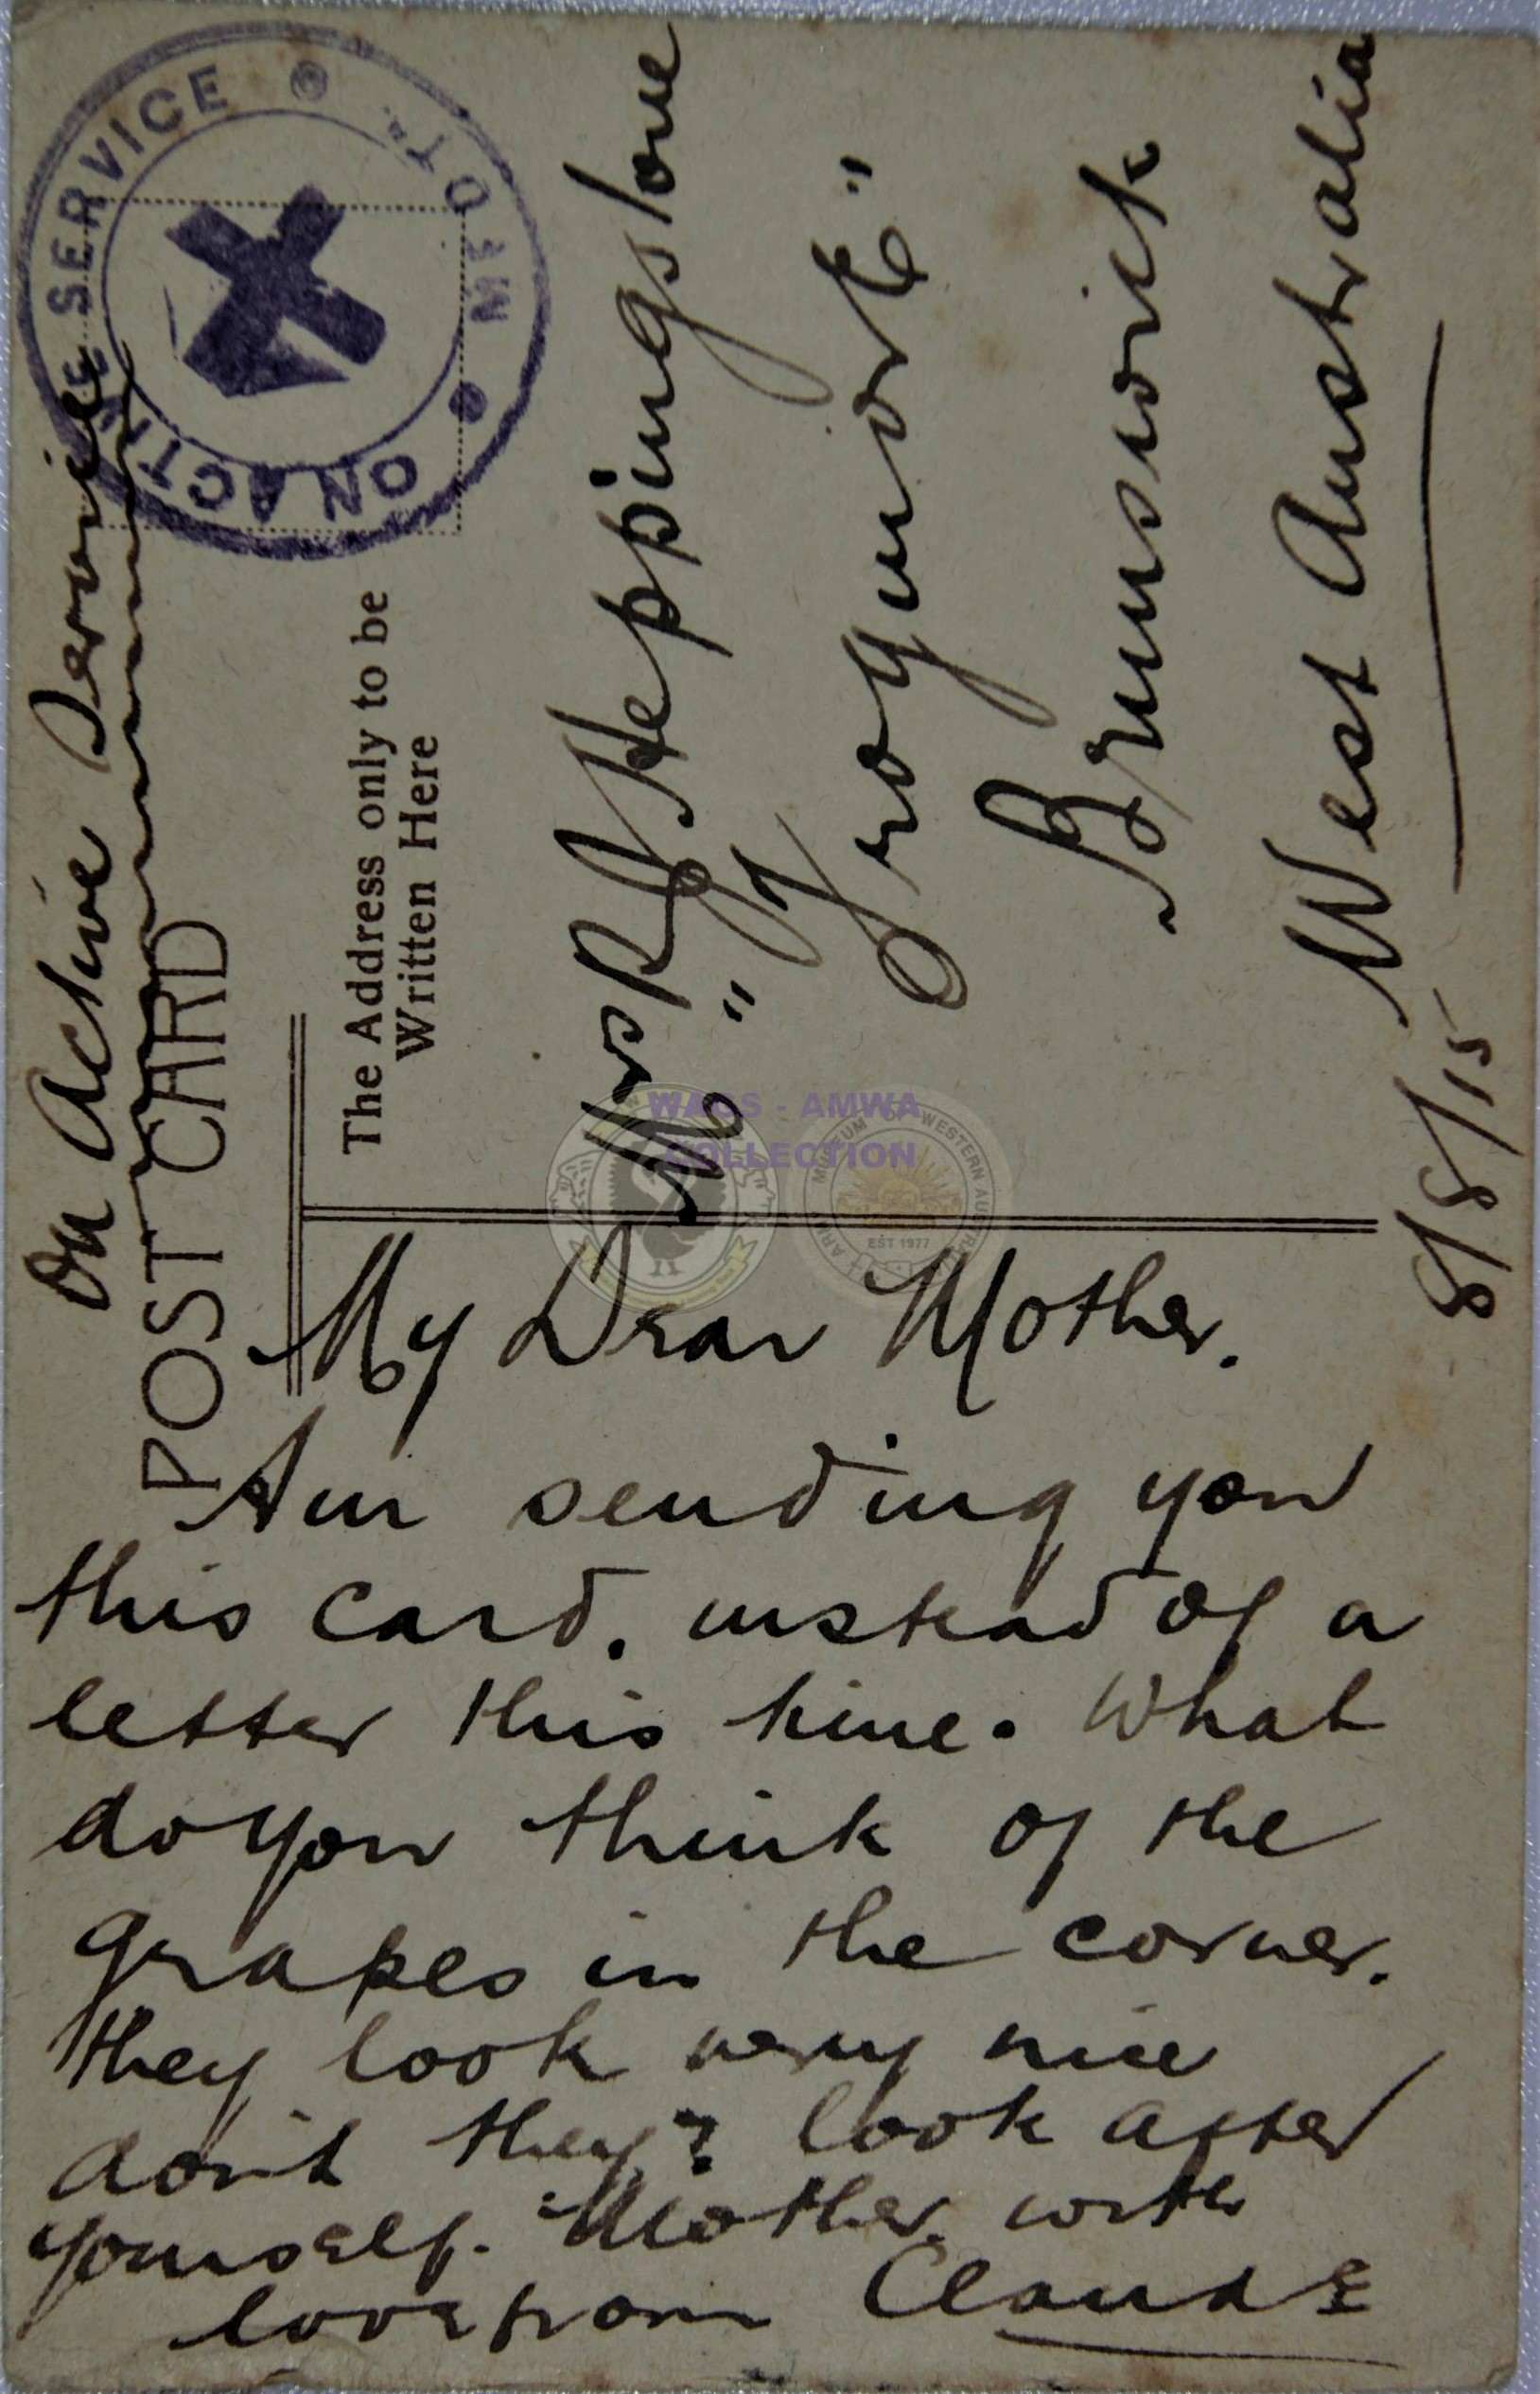 On Active Service
POST CARD
ON ACTIVE SERVICE
The Address only to be
Written Here
Mrs R J Heppingstone
Brunswick
West Australia
8/8/15
My Dear Mother.
Am sending you
this card. instead of a
letter this time. What
do you think of the
grapes in the corner.
they look very nice
don't they? look after
yourself. Mother. with
love from Claude
WAGS - AMWA
COLLECTION
MUSEUM OF WESTERN AUSTRALIA
EST 1977